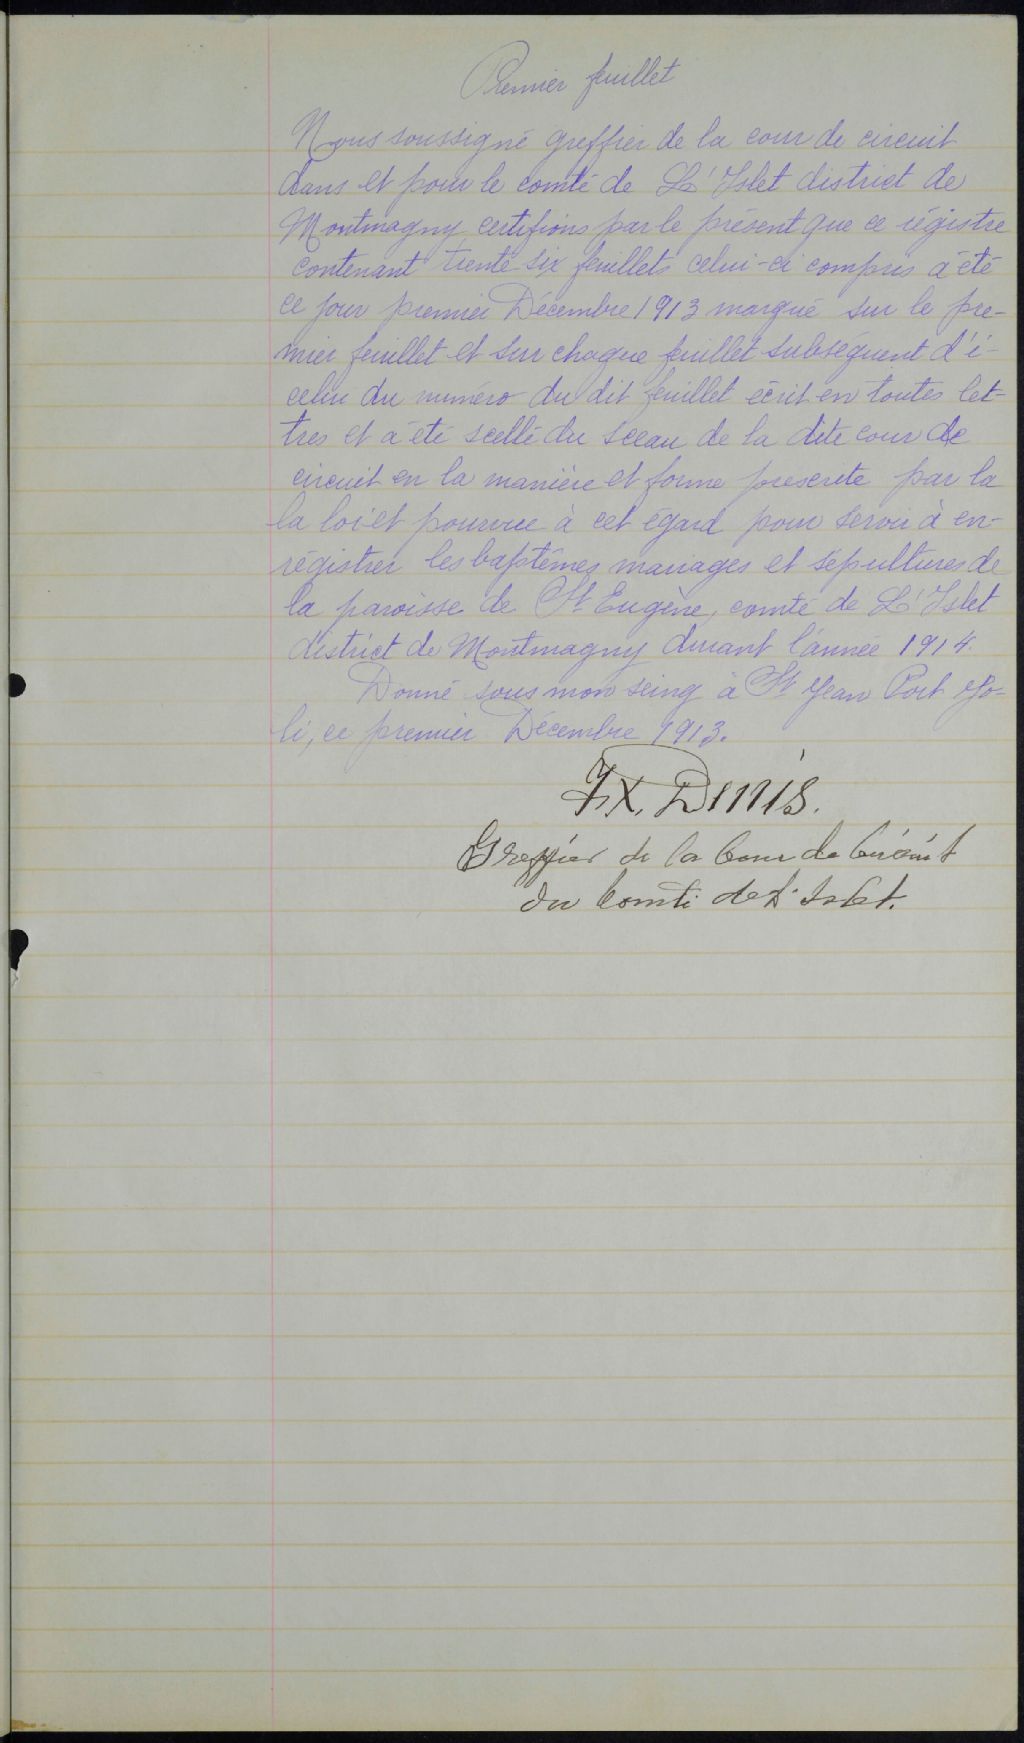 Premier feuillet
Nous soussigné greffier de la cour de circuit
dans et pour le comté de L'Islet district de
Montmagny certifions par le présent que ce régistre
contenant trente six feuillets celui-ci compris a été
ce jour premier Décembre 1913 marqué sur le pre-
mier feuillet et sur chaque feuillet subséquent d'i-
celui du numéro du dit feuillet écrit en toutes let-
tres et a été scellé du sceau de la dite cour de
circuit en la manière et forme prescrite par la
la loi et pourvue à cet égard pour servir à en-
régistrer les baptêmes mariages et sépultures de
la paroisse de St Eugène, comté de L'Islet
district de Montmagny durant l'année 1914.
Donné sous mon seing à St Jean Port Jo-
li, ce premier Décembre 1913.
F.X. Dénis.
Greffier de la Cour de Circuit
du Comté de L'Islet.